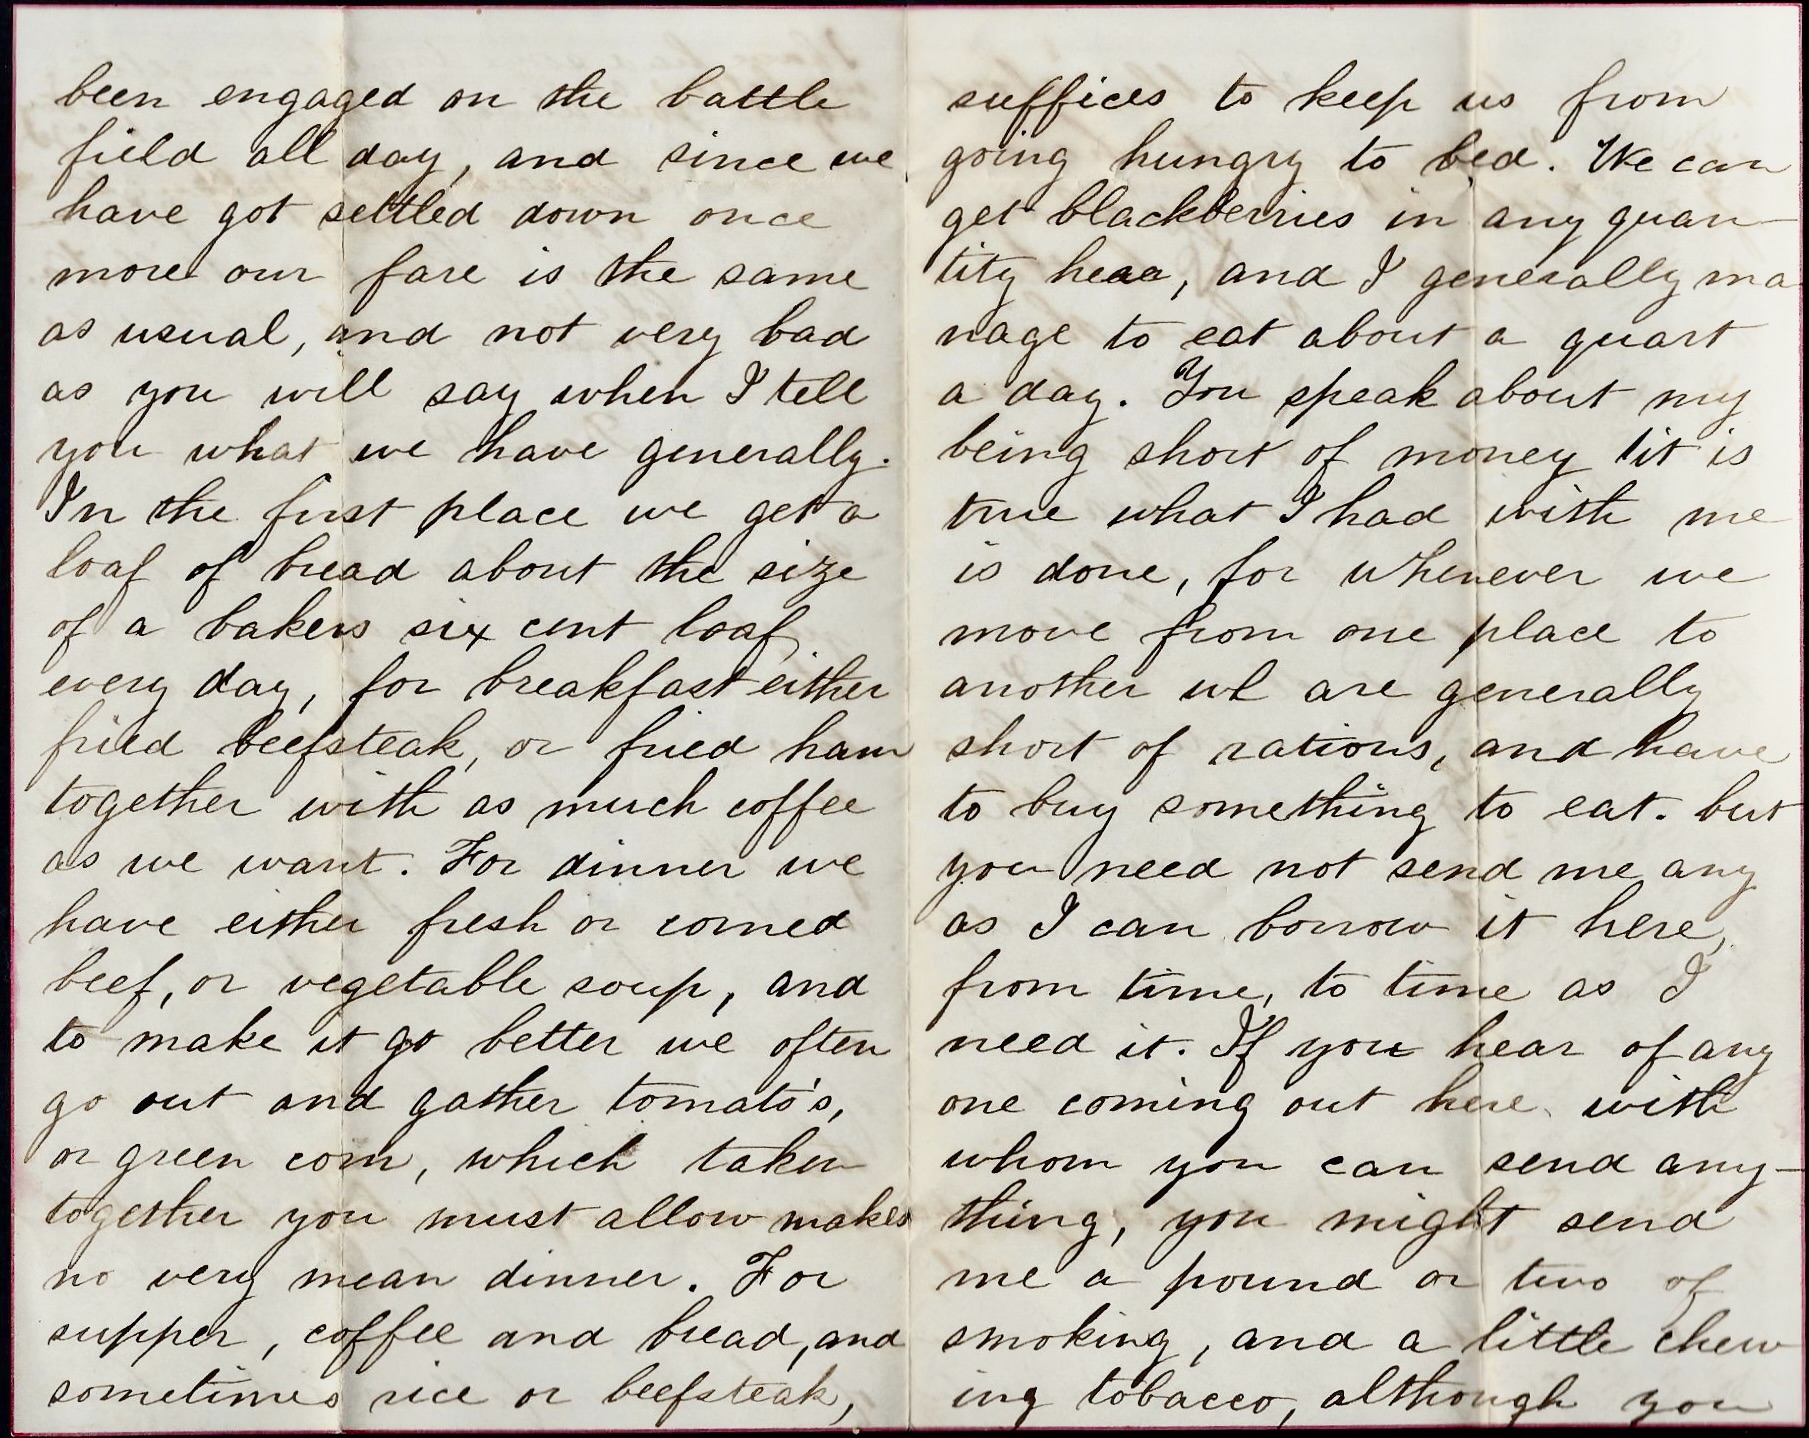 been engaged on the battle
field all day, and since we
have got settled down once
more our fare is the same
as usual, and not very bad
as you will say when I tell
you what we have generally.
In the first place we get a
loaf of bread about the size
of a bakers six cent loaf
every day, for breakfast either
fried beefsteak, or fried ham
together with as much coffee
as we want. For dinner we
have either fresh or corned
beef, or vegetable soup, and
to make it go better we often
go out and gather tomato's,
or green corn, which taken
together you must allow makes
no very mean dinner. For
supper, coffee and bread, and
sometimes rice or beefsteak,
suffices to keep us from
going hungry to bed. We can
get blackberries in any quan-
tity hear, and I generally ma
nage to eat about a quart
a day. You speak about my
being short of money it is
true what I had with me
is done, for whenever we
move from one place to
another we are generally
short of rations, and have
to buy something to eat. but
you need not send me any
as I can borrow it here,
from time, to time as I
need it. If you hear of any
one coming out here with
whom you can send any-
thing, you might send
me a pound or two of
smoking, and a little chew
ing tobacco, although you